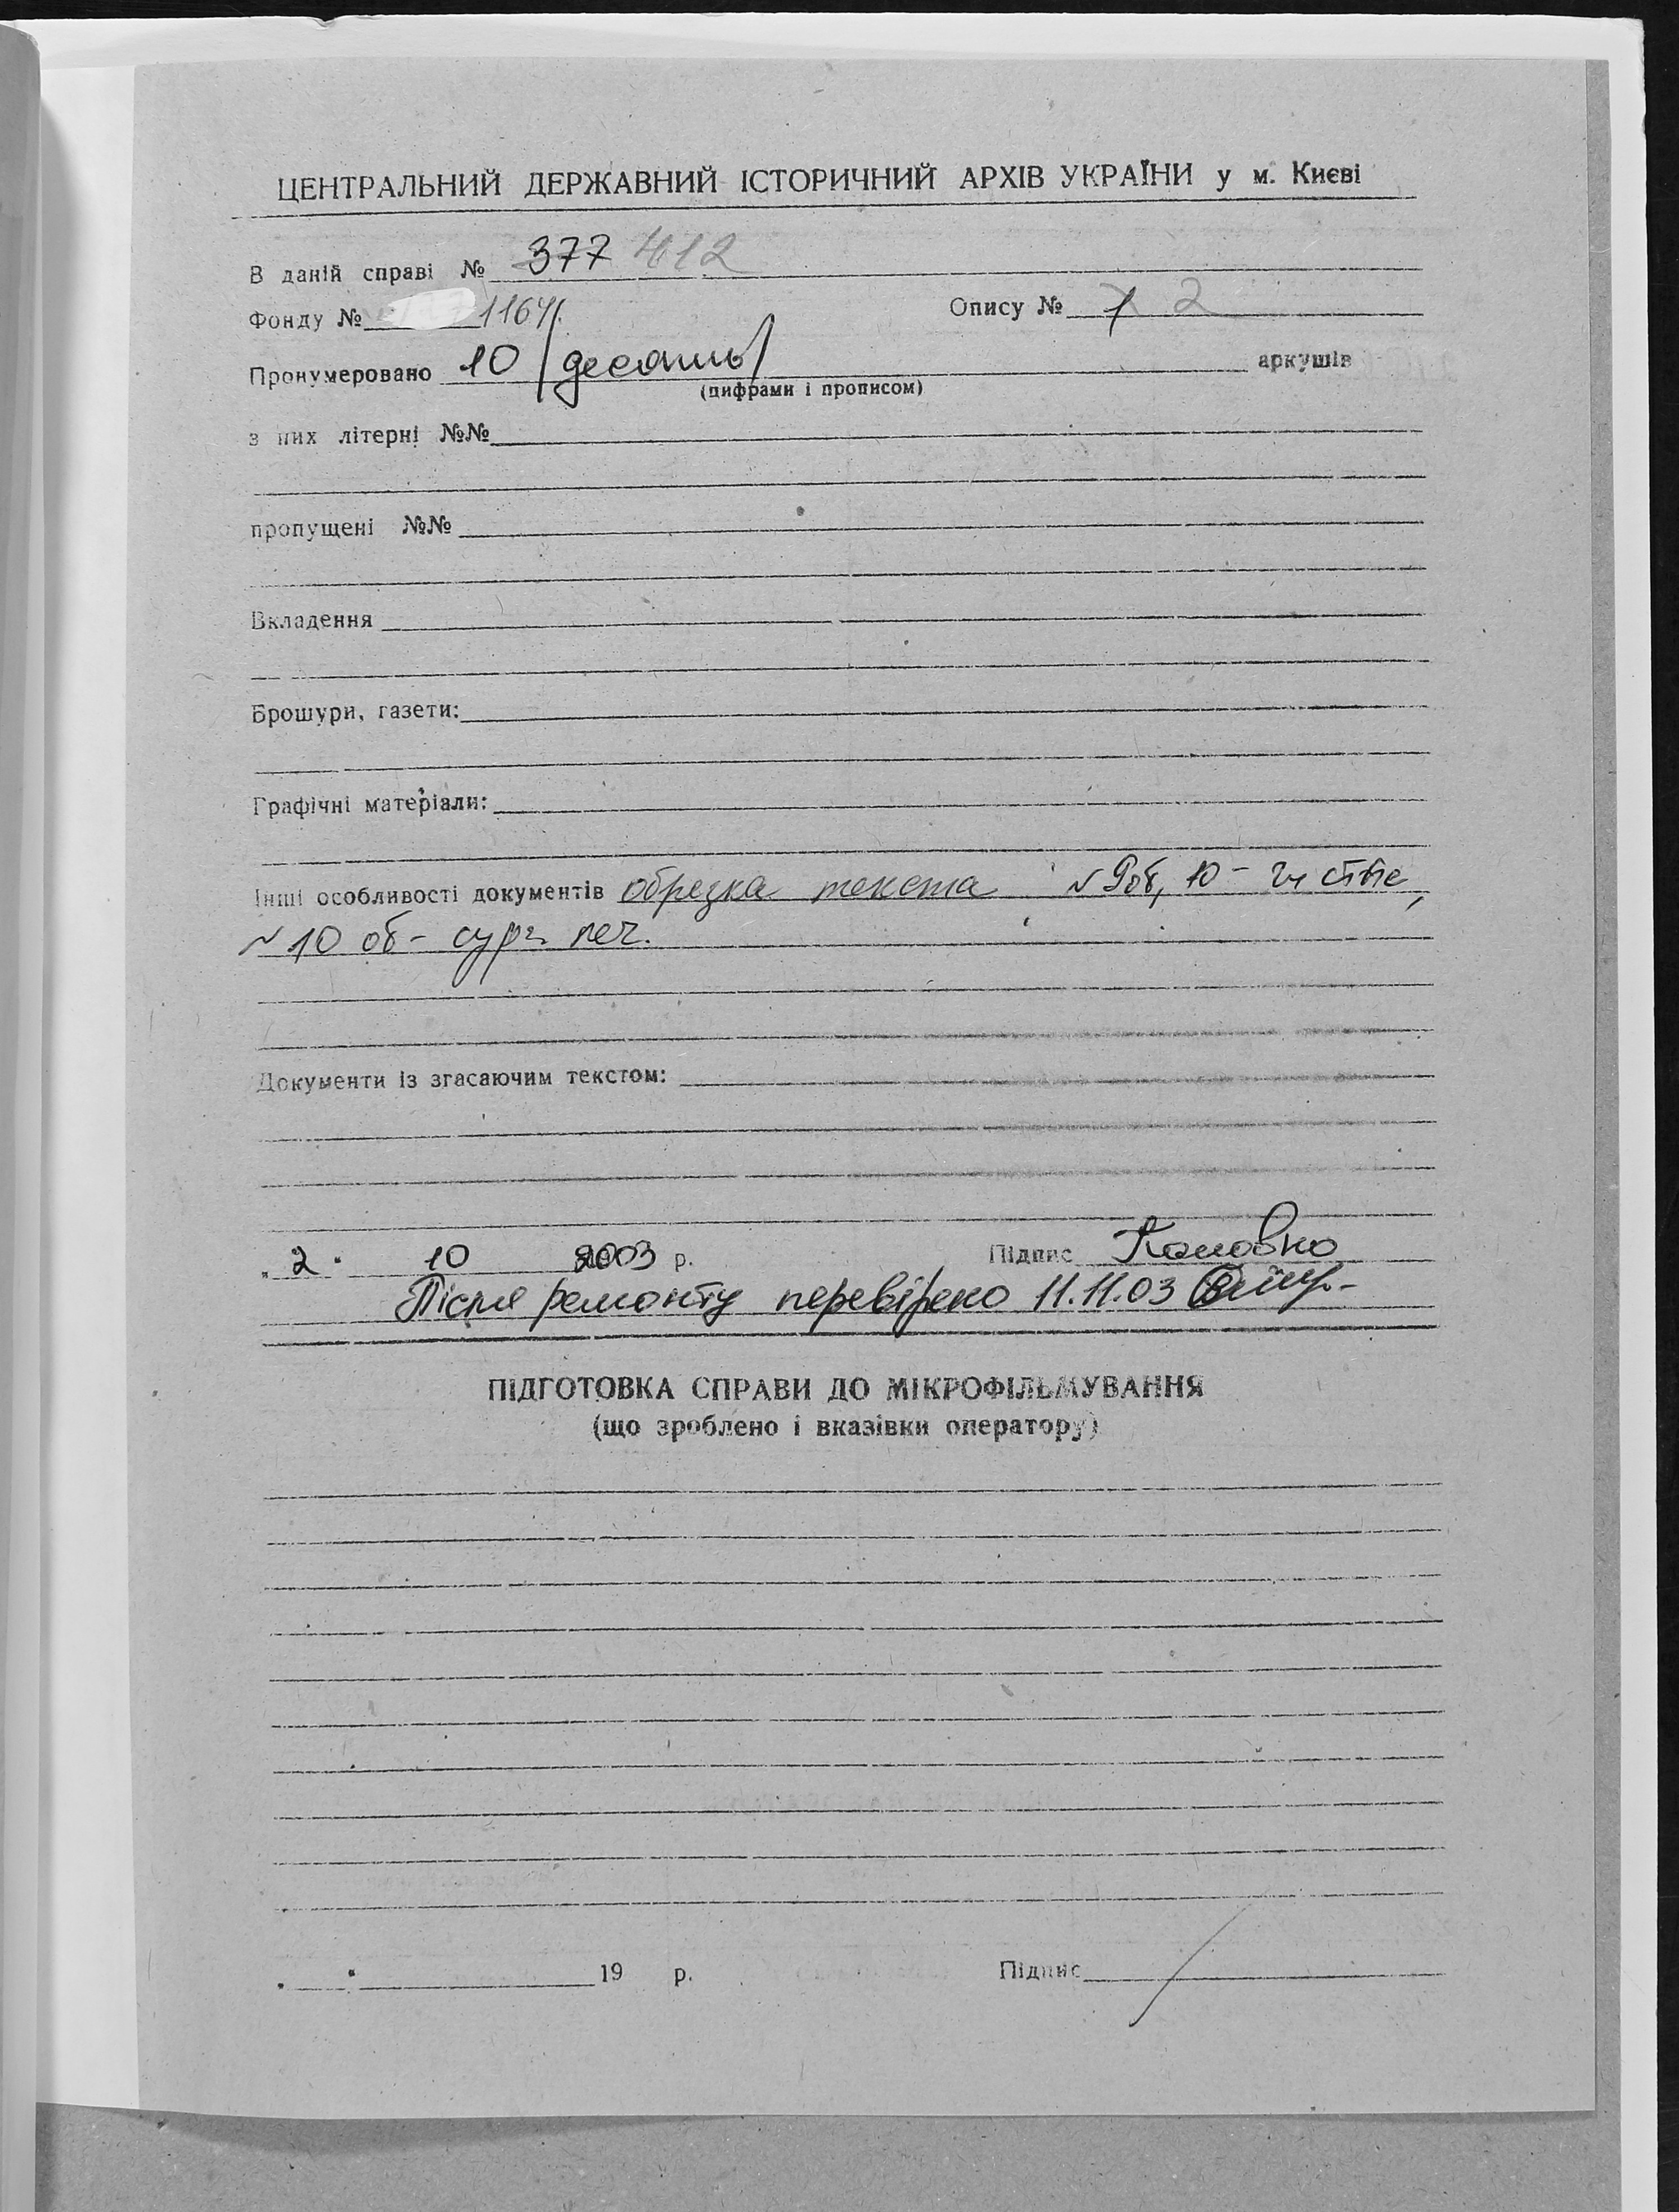 ЦЕНТРАЛЬНИЙ ДЕРЖАВНИЙ ІСТОРИЧНИЙ АРХІВ УКРАЇНИ у м. Києві
В даній справі № 377 412
Фонду № 1164 Опису № 1 2
Пронумеровано 10 /десять/ аркушів
(цифрами і прописом)
з них літерні №№
пропущені №№
Вкладення
Брошури, газети:
Графічні матеріали:
Інші особливості документів обрезка текста N 9об, 10 - чистые,
N 10 об - сург. печ.
Документи із згасаючим текстом:
"2" 10 2003 р. Підпис
Після ремонту перевірено 11.11.03
ПІДГОТОВКА СПРАВИ ДО МІКРОФІЛЬМУВАННЯ
(що зроблено і вказівки оператору)
" " 19 р. Підпис